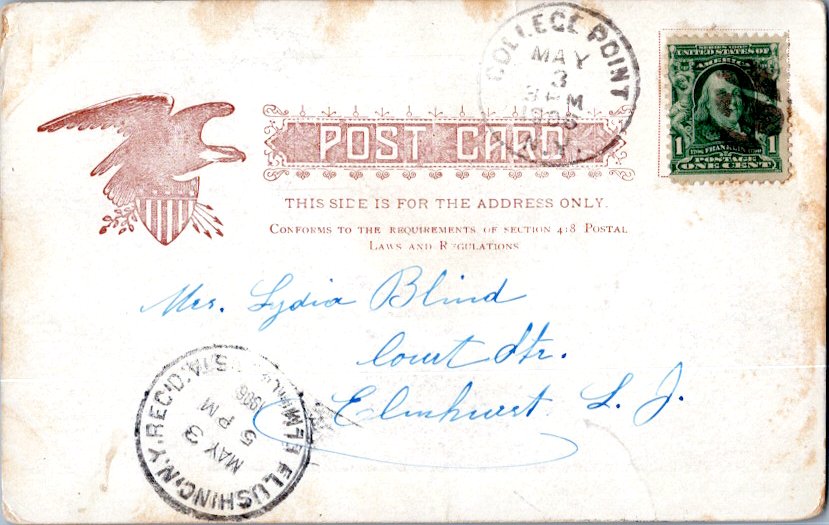 COLLEGE POINT
MAY
3
3 PM
N.Y.
SERIES 1902
UNITED STATES OF
AMERICA
1 FRANKLIN 1
POSTAGE
ONE CENT
POST CARD
THIS SIDE IS FOR THE ADDRESS ONLY.
CONFORMS TO THE REQUIREMENTS OF SECTION 418 POSTAL
LAWS AND REGULATIONS
Mrs. Lydia Blind
Court Str.
Elmhurst L. I.
FLUSHING, N.Y. REC'D.
MAY 3
5 PM
1906